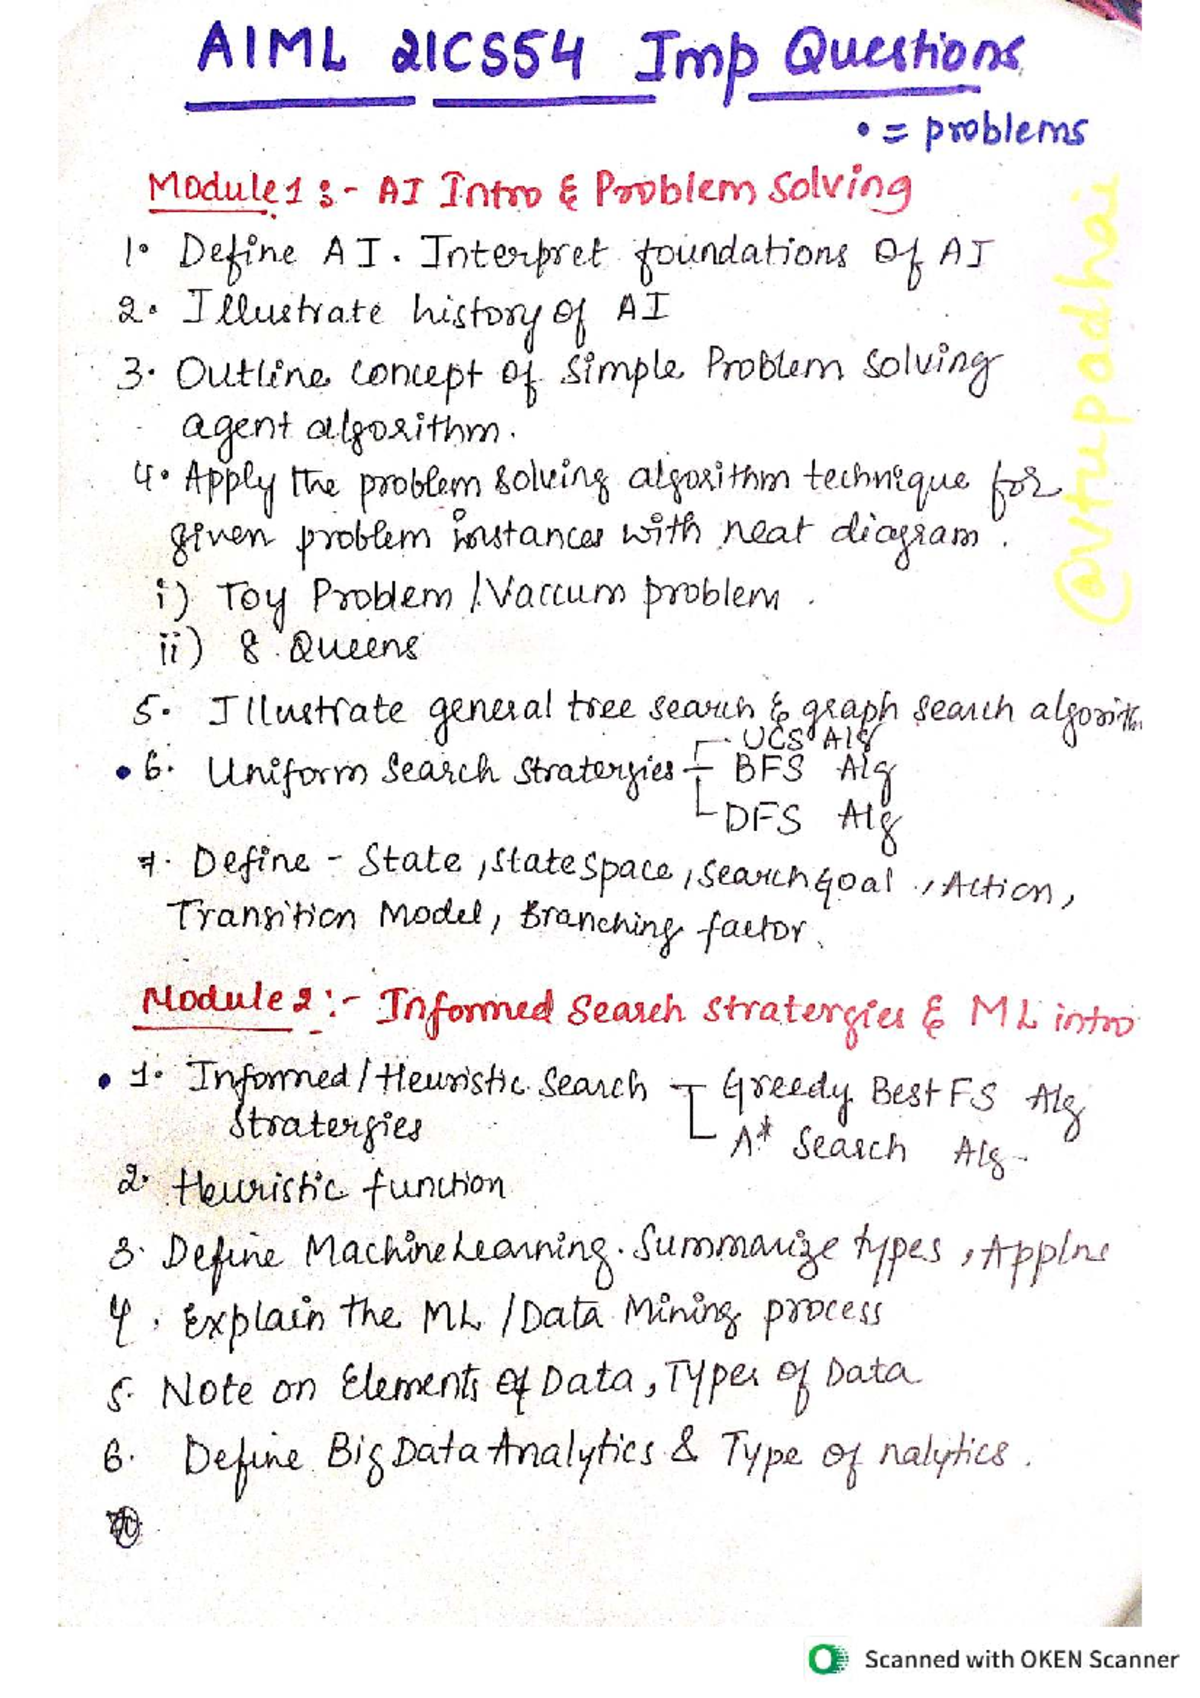 AIML 21CS54 Imp Questions
• = problems
Module 1 :- AI Intro & Problem Solving
1. Define AI. Interpret foundations Of AI
2. Illustrate history of AI
3. Outline concept of Simple Problem Solving
agent algorithm.
4. Apply the problem solving algorithm technique for
given problem instances with neat diagram.
i) Toy Problem / Vaccum problem.
ii) 8 Queens
5. Illustrate general tree search & graph search algorith
UCS Alg
• 6. Uniform Search Stratergies BFS Alg
DFS Alg
7. Define - State, state space, search goal, Action,
Transition Model, Branching factor.
Module 2 :- Informed Search Stratergies & ML intro
• 1. Informed / Heuristic Search Greedy Best FS Alg
Stratergies A* Search Alg.
2. Heuristic function
3. Define Machine Learning. Summarize types, Applns
4. Explain the ML / Data Mining process
5. Note on Elements of Data, Types of Data
6. Define Big Data Analytics & Type of nalytics.
@vtupadhai
Scanned with OKEN Scanner